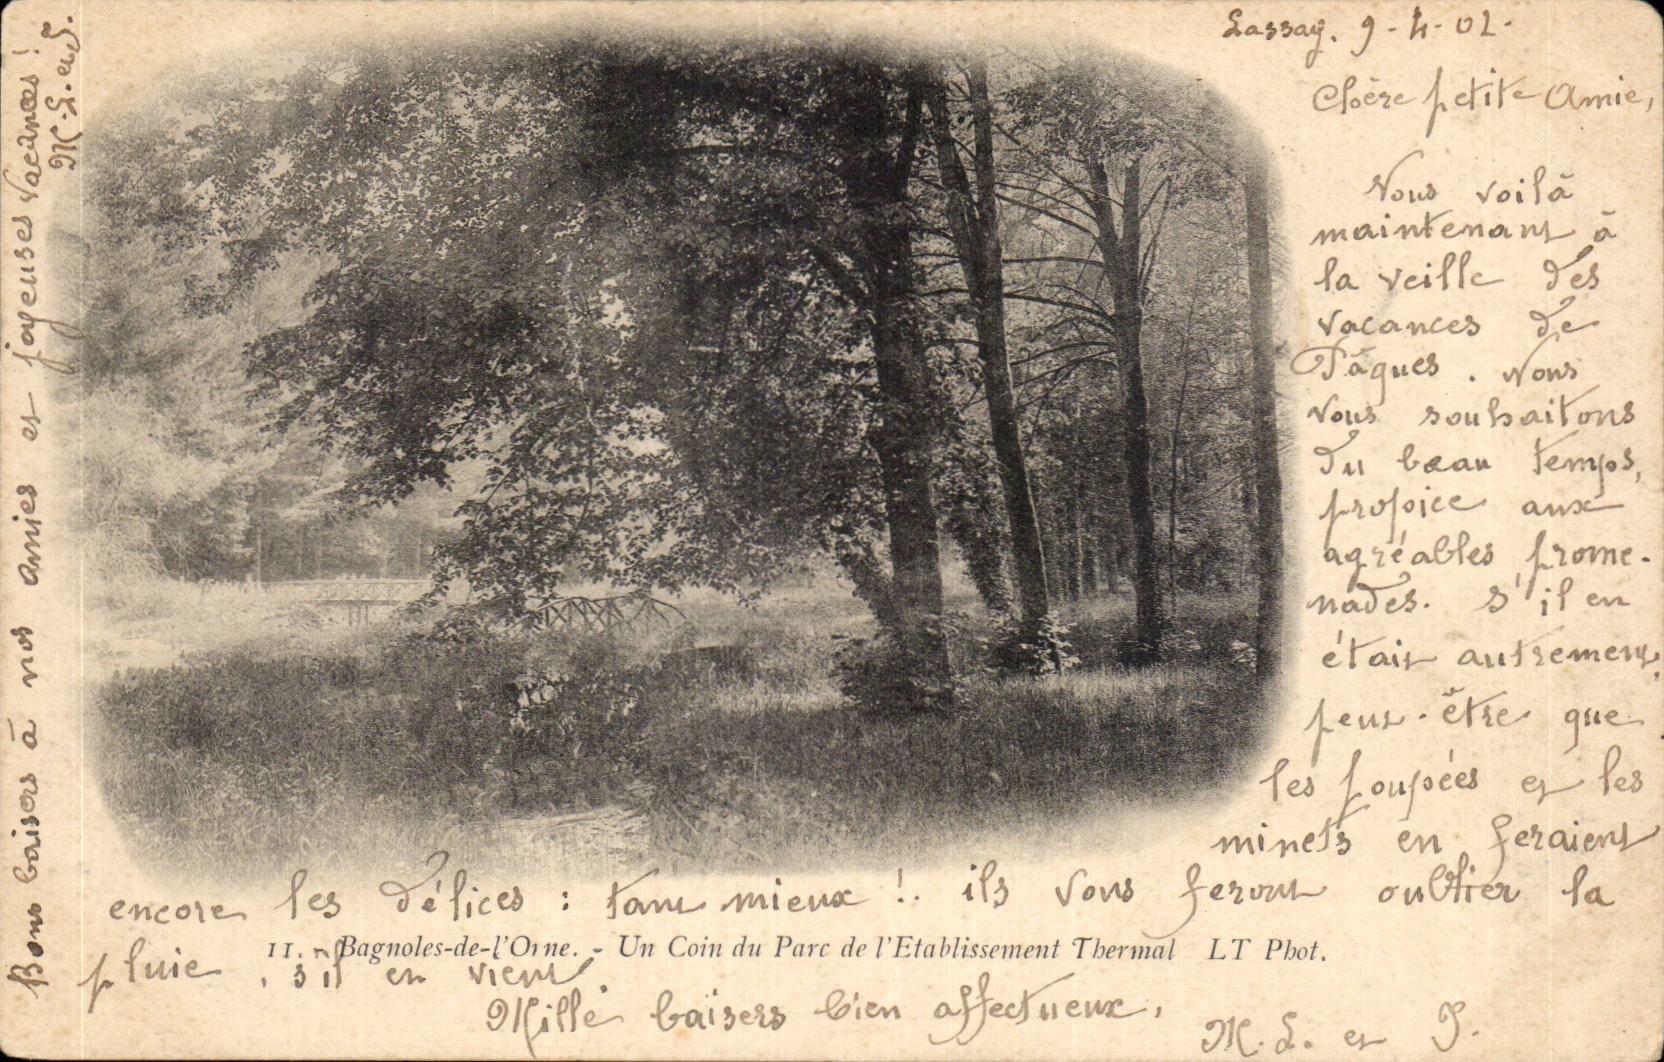 Lassay. 9-4-02.
Chère petite Amie,
Vous voilà
maintenant à
la veille des
vacances de
Pâques. Nous
vous souhaitons
du beau temps,
propice aux
agréables prome-
nades. S'il en
était autrement,
peut-être que
les poupées et les
minets en feraient
encore les délices : tant mieux !. ils vous feront oublier la
pluie, s'il en vient.
11. - Bagnoles-de-l'Orne. - Un Coin du Parc de l'Etablissement Thermal LT Phot.
Mille baisers bien affectueux,
M. L. et J.
Bons baisers à nos amies et joyeuses vacances !
M. L. et J.